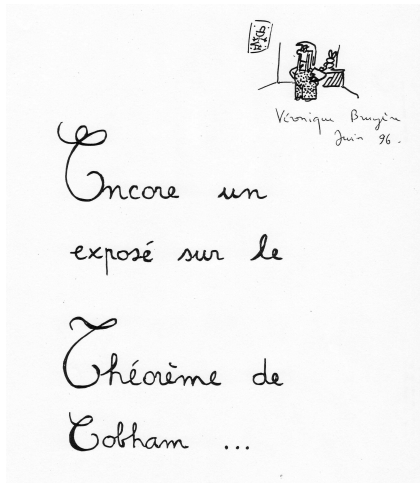 Véronique Bruyère
Juin 96.
Encore un
exposé sur le
Théorème de
Cobham ...